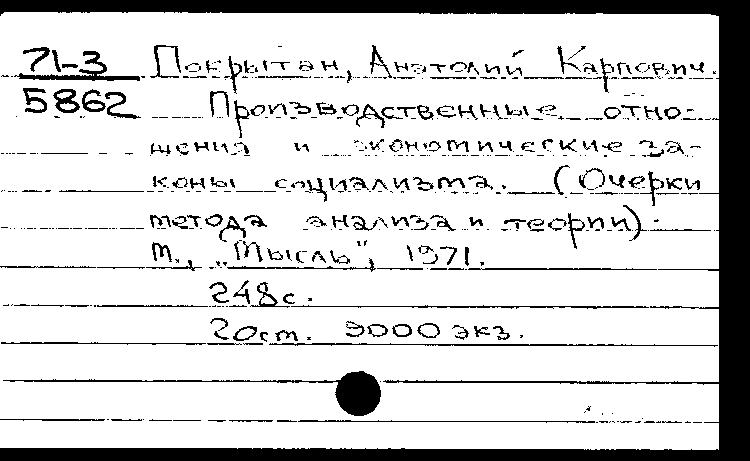 71-3 Покрытан, Анатолий Карпович.
5862 Производственные отно-
шения и экономические за-
коны социализма. (Очерки
метода анализа и теории).
М., „Мысль“, 1971.
248с.
20см. 9000 экз.